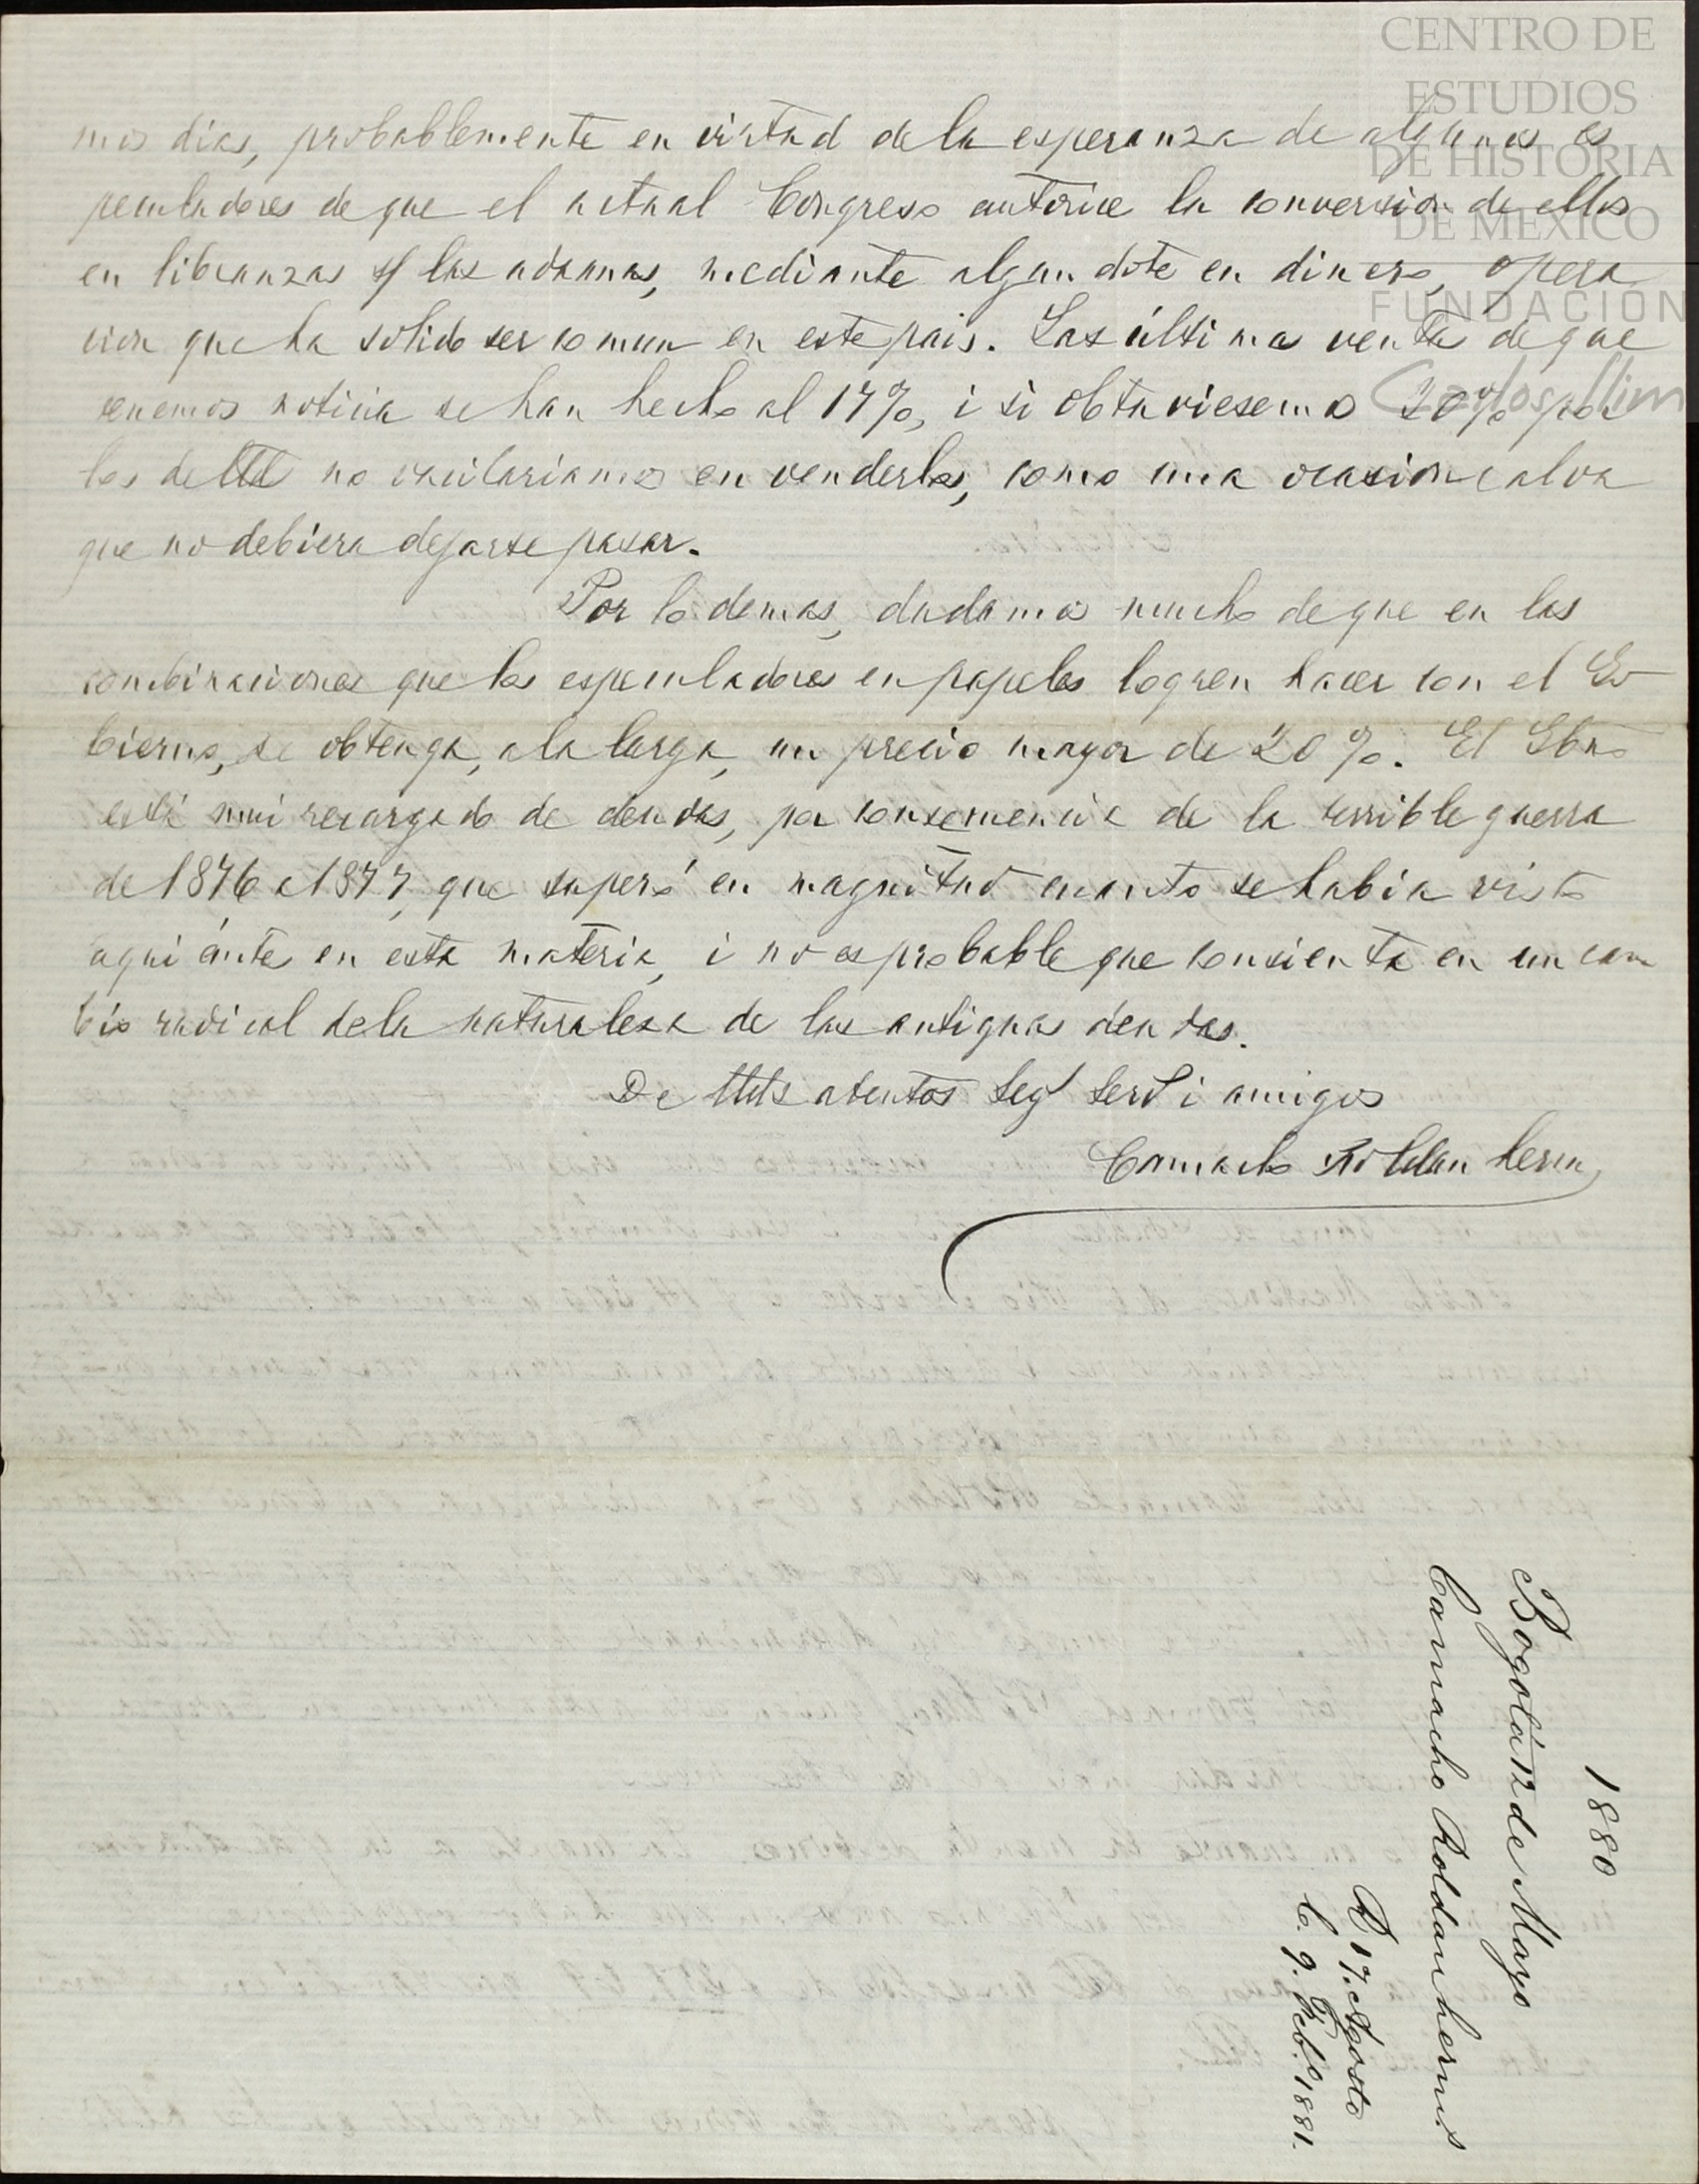 mos dias, probablemente en virtud de la esperanza de algunos es
peculadores de que el actual Congreso autorice la conversion de ellos
en libranzas s/ las aduanas, mediante algun dote en dinero, opera
cion que ha solido ser comun en este pais. Las últimas ventas de que
tenemos noticia se han hecho al 17%, i si obtuviesemos 20% por
los de Ud no vacilariamos en venderlos, como una ocasion calva
que no debiera dejarse pasar.
Por lo demas, dudamos mucho de que en las
combinaciones que los especuladores en papeles logren hacer con el Go
bierno, se obtenga, a la larga, un precio mayor de 20%. El Gbno
está mui recargado de deudas, por consecuencia de la terrible guerra
de 1876 a 1877, que superó en magnitud cuanto se habia visto
aqui ántes en esta materia, i no es probable que consienta en un cam
bio radical de la naturaleza de las antiguas deudas.
De Uds atentos Seg^s Serv^s i amigos
Camacho Roldan herm^s
1880
Bogotá 12 de Mayo
Camacho Roldan herm.s
R 17. Agosto
C. 9. Feb.º 1881.
CENTRO DE
ESTUDIOS
DE HISTORIA
DE MEXICO
FUNDACIÓN
Carlos Slim